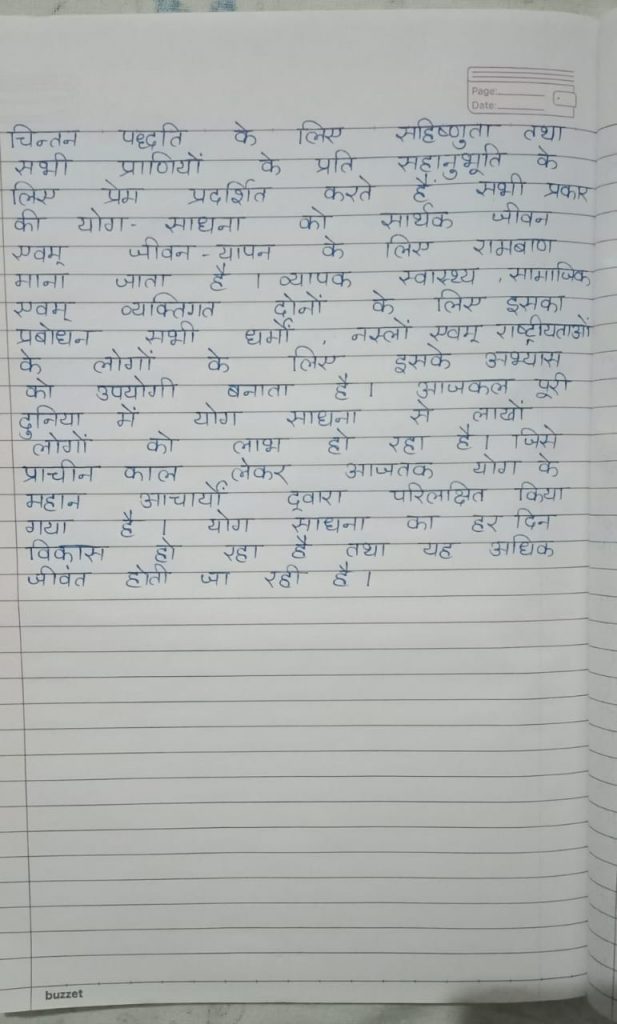 Page:
Date:
चिन्तन पद्धति के लिए सहिष्णुता तथा
सभी प्राणियों के प्रति सहानुभूति के
लिए प्रेम प्रदर्शित करते हैं सभी प्रकार
की योग - साधना को सार्थक जीवन
एवम् जीवन - यापन के लिए रामबाण
माना जाता है । व्यापक स्वास्थ्य , सामाजिक
एवम् व्यक्तिगत दोनों के लिए इसका
प्रबोधन सभी धर्मों , नस्लों एवम् राष्ट्रीयताओं
के लोगों के लिए इसके अभ्यास
को उपयोगी बनाता है । आजकल पूरी
दुनिया में योग साधना से लाखों
लोगों को लाभ हो रहा है । जिसे
प्राचीन काल लेकर आजतक योग के
महान आचार्यों द्वारा परिलक्षित किया
गया है । योग साधना का हर दिन
विकास हो रहा है तथा यह अधिक
जीवंत होती जा रही है ।
buzzet